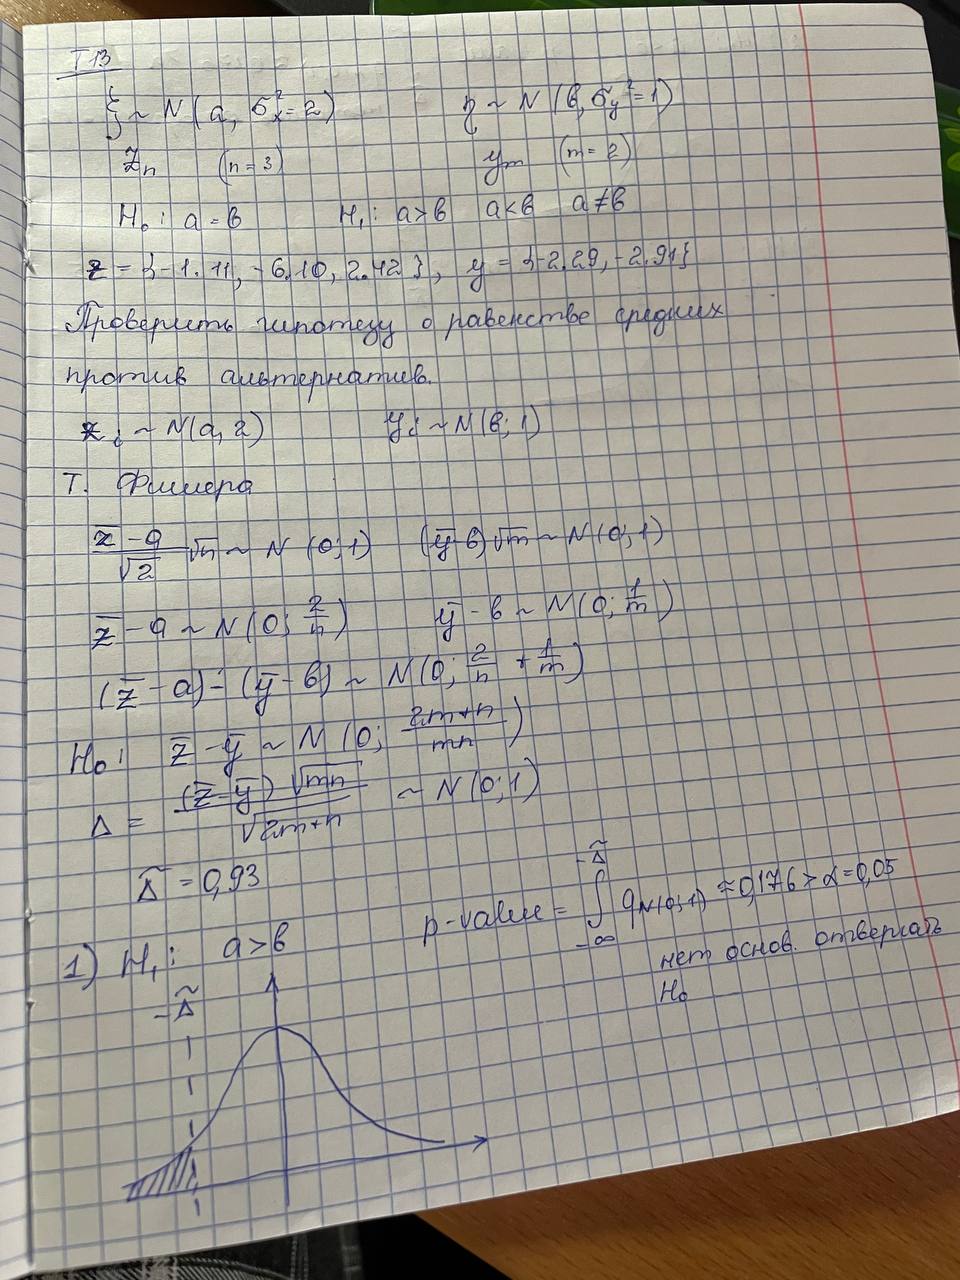 T 13
ξ ~ N(a, σₓ²=2) η ~ N(b, σᵧ²=1)
Zₙ (n=3) yₘ (m=2)
H₀: a=b H₁: a>b a<b a≠b
z = {-1.11, -6.10, 2.42}, y = {-2.29, -2.91}
Проверить гипотезу о равенстве средних
против альтернатив.
zᵢ ~ N(a, 2) yᵢ ~ N(b; 1)
Т. Фишера
(z̄ - a)/√2 √n ~ N(0;1) (ȳ-b)√m ~ N(0;1)
z̄ - a ~ N(0; 2/n) ȳ - b ~ N(0; 1/m)
(z̄ - a) - (ȳ - b) ~ N(0; 2/n + 1/m)
H₀: z̄ - ȳ ~ N(0; (2m+n)/(mn))
Δ = (z̄-ȳ)√(mn) / √(2m+n) ~ N(0;1)
Δ̃ = 0,93
1) H₁: a>b p-value = ∫_{-∞}^{-Δ̃} q_{N(0;1)} ≈ 0,176 > α = 0,05
нет основ. отвергать
H₀
-Δ̃